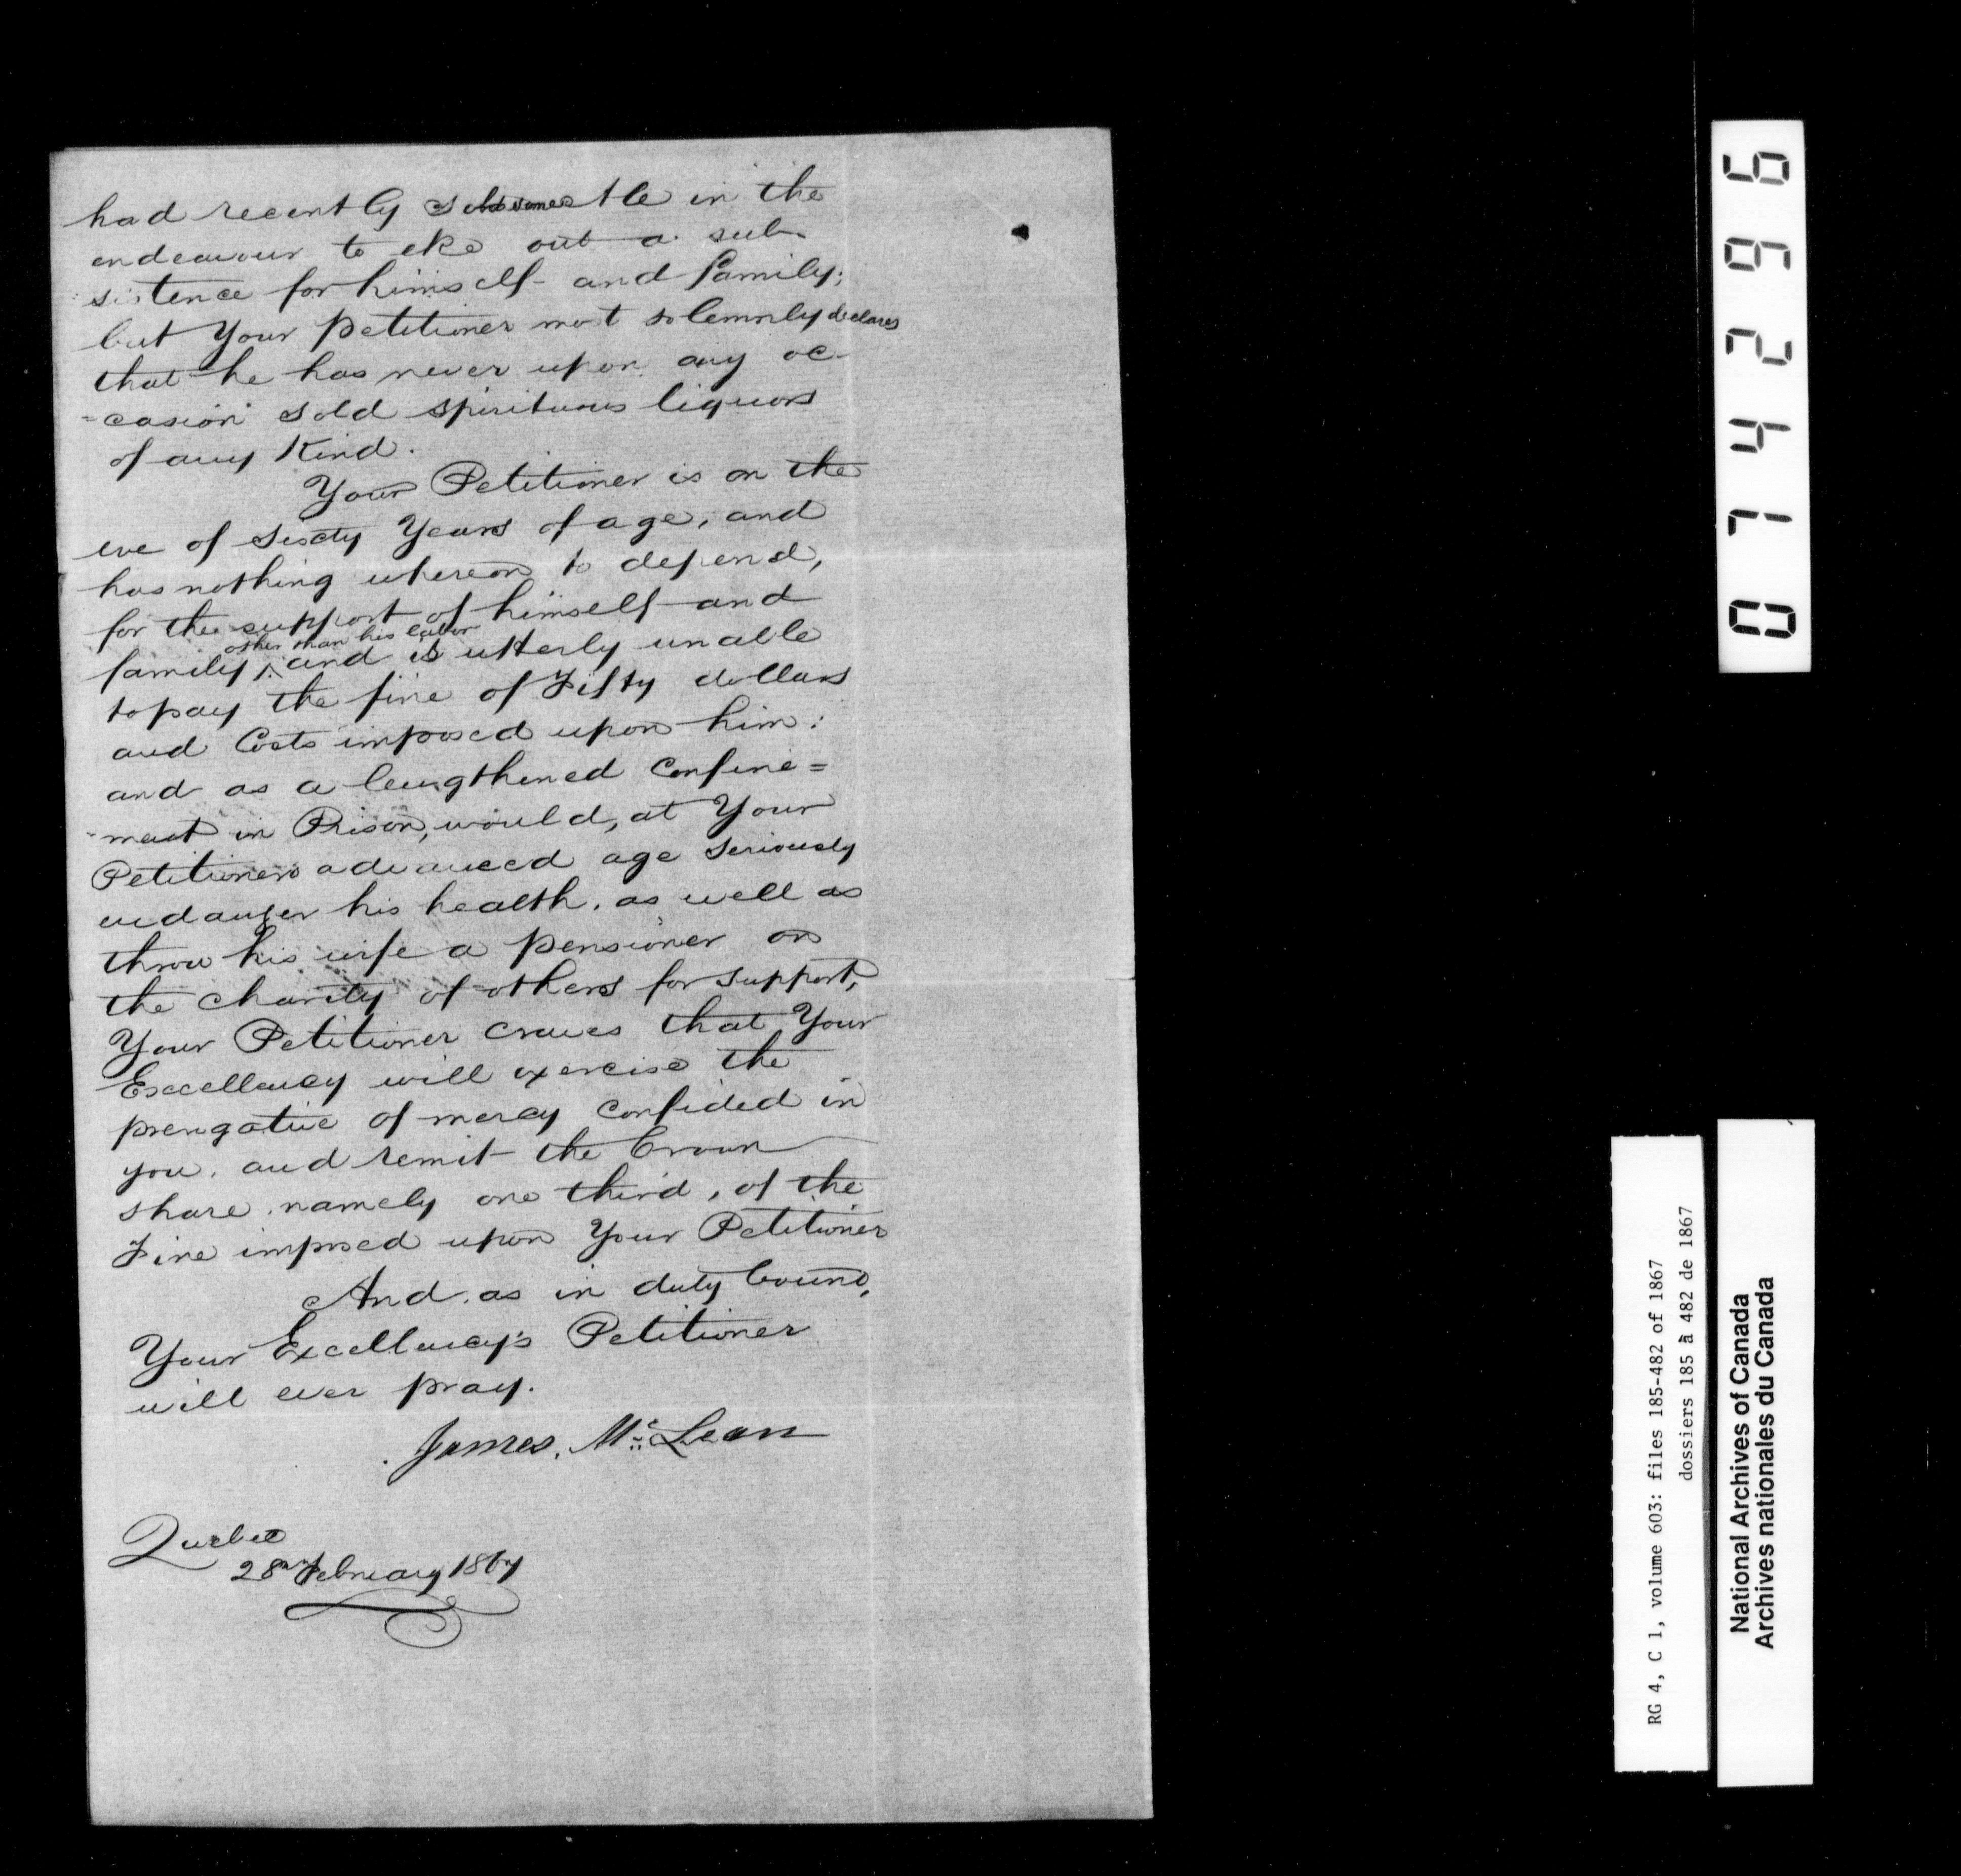 had recently sold some Ale in the
endeavour to eke out a sub-
sistence for himself and family;
but Your Petitioner most solemnly declares
that he has never upon any oc-
=casion sold spirituous liquors
of any Kind.
Your Petitioner is on the
eve of sixty Years of age, and
has nothing whereon to depend,
for the support of himself and
other than his labor
family, and is utterly unable
to pay the fine of Fifty dollars
and Costs imposed upon him:
and as a lengthened Confine=
-ment in Prison, would, at Your
Petitioners advanced age seriously
endanger his health, as well as
throw his wife a pensioner on
the charity of others for support,
Your Petitioner craves that Your
Excellency will exercise the
prerogative of mercy confided in
you, and remit the Crown
share, namely one third, of the
Fine imposed upon Your Petitioner
And, as in duty bound,
Your Excellency's Petitioner
will ever pray.
James, Mc Lean
Quebec
28th February 1867
074296
RG 4, C 1, volume 603: files 185-482 of 1867
dossiers 185 à 482 de 1867
National Archives of Canada
Archives nationales du Canada